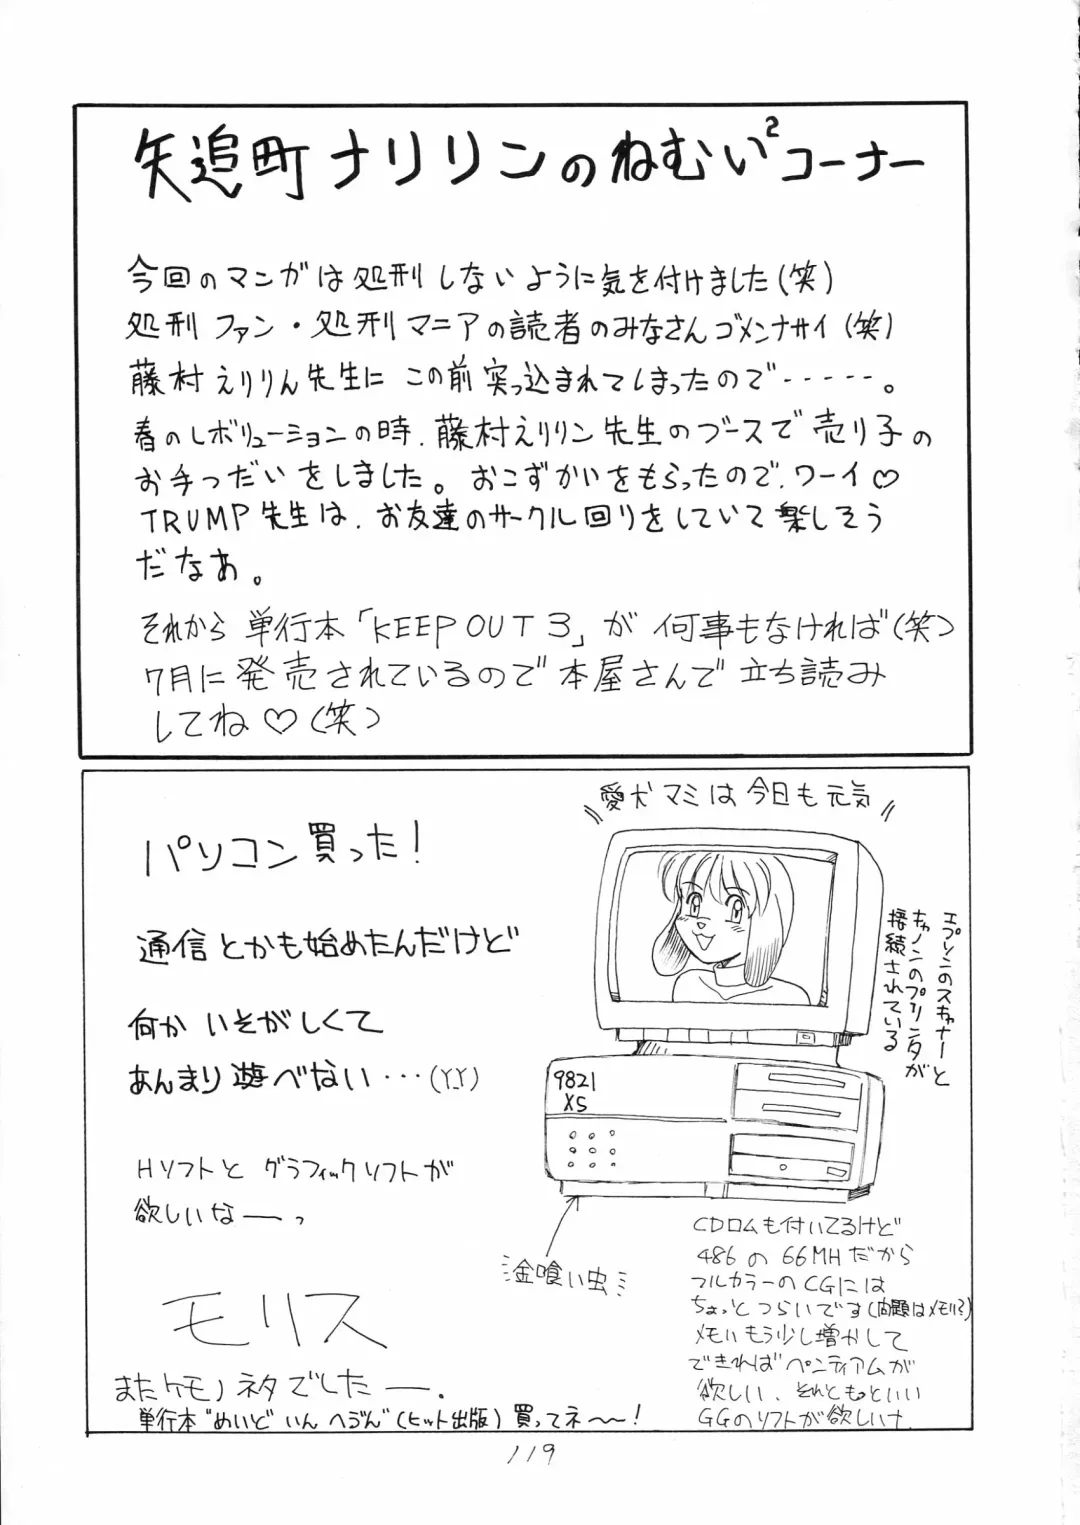 矢追町ナリリンのねむい²コーナー
今回のマンガは処刑しないように気を付けました(笑)
処刑ファン・処刑マニアの読者のみなさんゴメンナサイ(笑)
藤村えりりん先生に この前突っ込まれてしまったので・・・・・。
春のレボリューションの時、藤村えりリン先生のブースで売り子の
お手つだいをしました。おこずかいをもらったので、ワーイ♡
TRUMP先生は、お友達のサークル回りをしていて楽しそう
だなあ。
それから 単行本「KEEP OUT 3」が 何事もなければ(笑)
7月に発売されているので本屋さんで立ち読み
してね♡(笑)
愛犬マミは今日も元気
パソコン買った!
通信とかも始めたんだけど
何か いそがしくて
あんまり遊べない・・・(Y.Y)
Hソフトと グラフィックソフトが
欲しいなーっ
エプソンのスキャナーと
キャノンのプリンタが
接続されている
9821
XS
金喰い虫
CDロムも付いてるけど
486の66MHだから
フルカラーのCGには
ちょっとつらいです(問題はメモリ?)
メモリもう少し増やして
できればペンティアムが
欲しい、それともっといい
GGのソフトが欲しいナ
モリス
またケモノネタでしたー.
単行本“めいど いん へぶん”(ヒット出版)買ってネ〜!
119